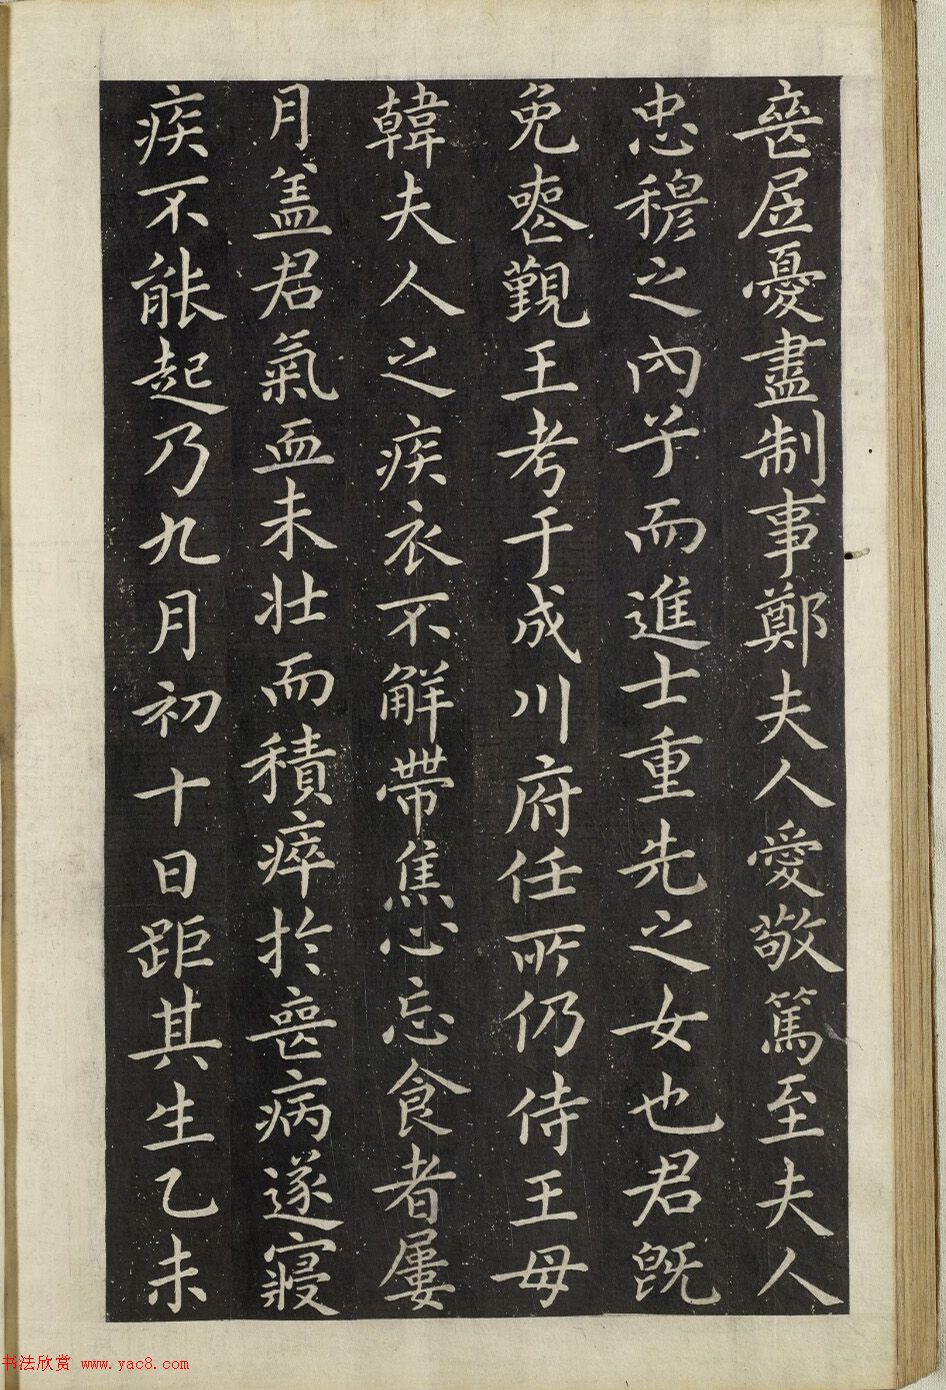 喪居憂盡制事鄭夫人愛敬篤至夫人
忠穆之內子而進士重先之女也君既
免喪覲王考于成川府任所仍侍王母
韓夫人之疾衣不解帶焦心忘食者屢
月盖君氣血未壯而積瘁於喪病遂寢
疾不能起乃九月初十日距其生乙未
书法欣赏 www.yac8.com